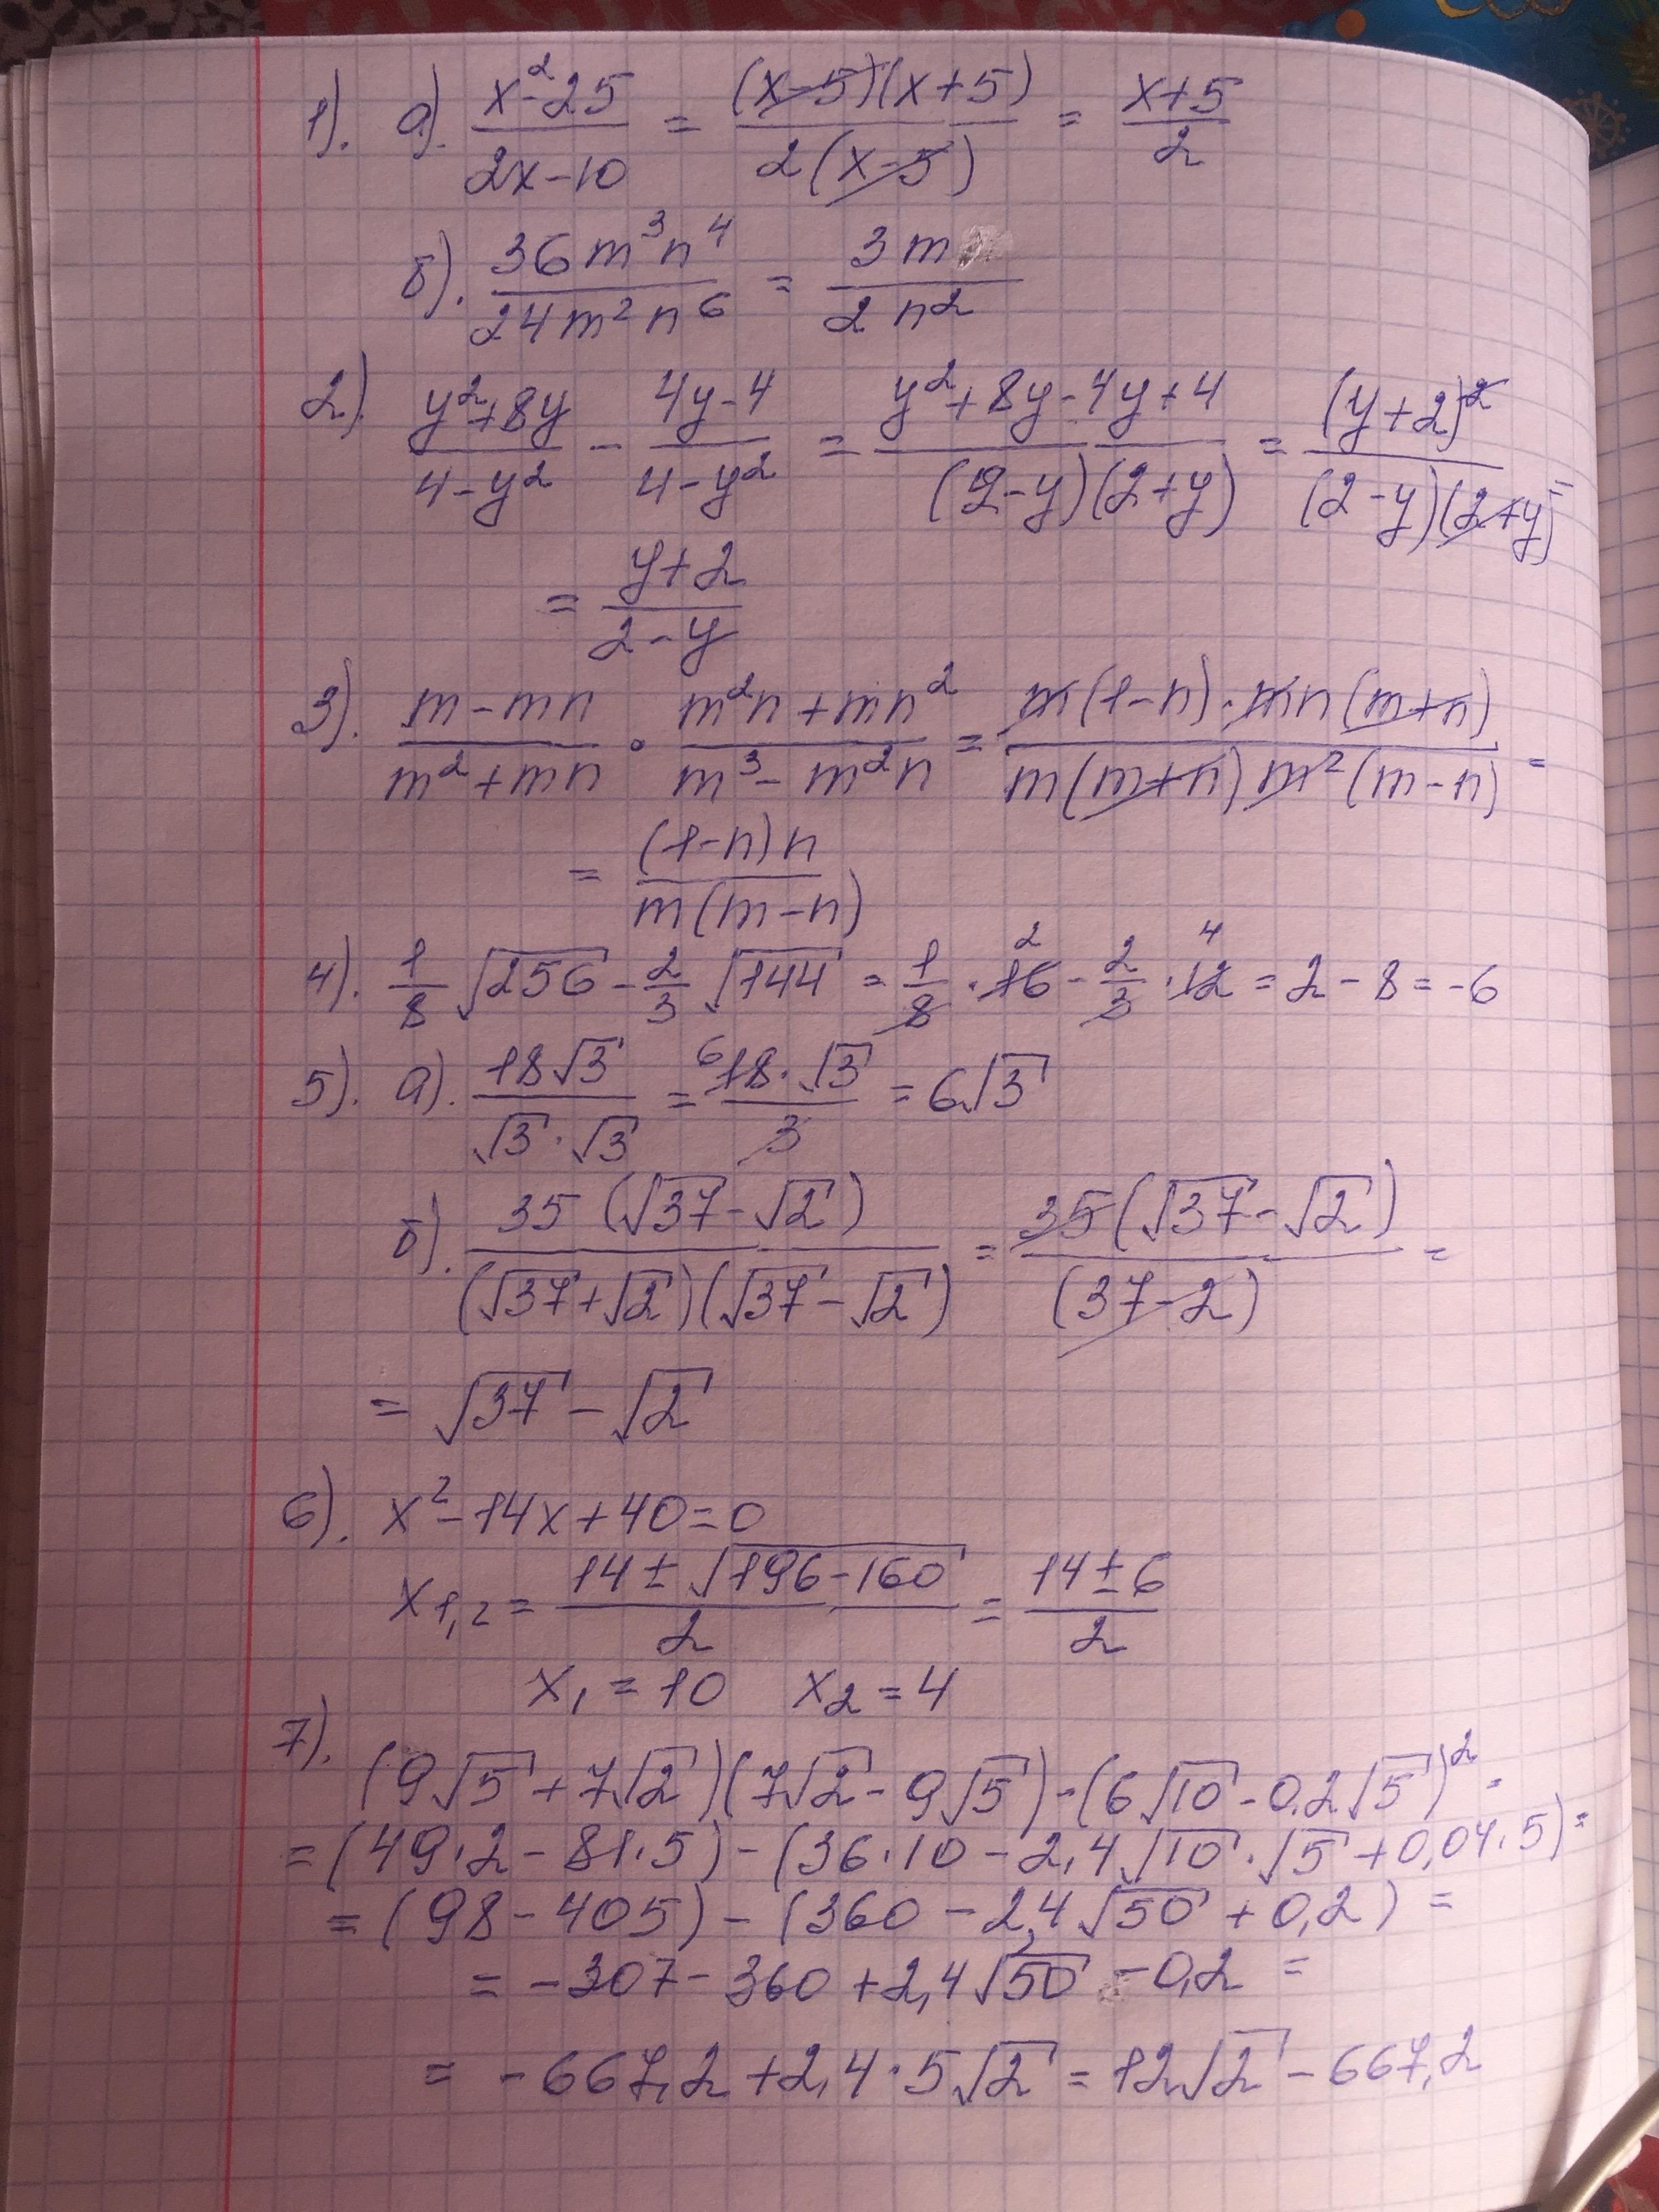 1). а). (x²-25)/(2x-10) = ((x-5)(x+5))/(2(x-5)) = (x+5)/2
б). (36m³n⁴)/(24m²n⁶) = (3m)/(2n²)
2). (y²+8y)/(4-y²) - (4y-4)/(4-y²) = (y²+8y-4y+4)/((2-y)(2+y)) = (y+2)²/((2-y)(2+y)) =
= (y+2)/(2-y)
3). (m-mn)/(m²+mn) · (m²n+mn²)/(m³-m²n) = (m(1-n)·mn(m+n))/(m(m+n)m²(m-n)) =
= ((1-n)n)/(m(m-n))
4). 1/8 √256 - 2/3 √144 = 1/8 · 16 - 2/3 · 12 = 2 - 8 = -6
5). а). (18√3)/(√3·√3) = (18·√3)/3 = 6√3
б). (35(√37-√2))/((√37+√2)(√37-√2)) = (35(√37-√2))/(37-2) =
= √37 - √2
6). x²-14x+40=0
x₁,₂ = (14±√(196-160))/2 = (14±6)/2
x₁ = 10 x₂ = 4
7).
(9√5+7√2)(7√2-9√5)-(6√10-0,2√5)² =
= (49·2-81·5)-(36·10-2,4√10·√5+0,04·5) =
= (98-405)-(360-2,4√50+0,2) =
= -307-360+2,4√50-0,2 =
= -667,2+2,4·5√2 = 12√2-667,2